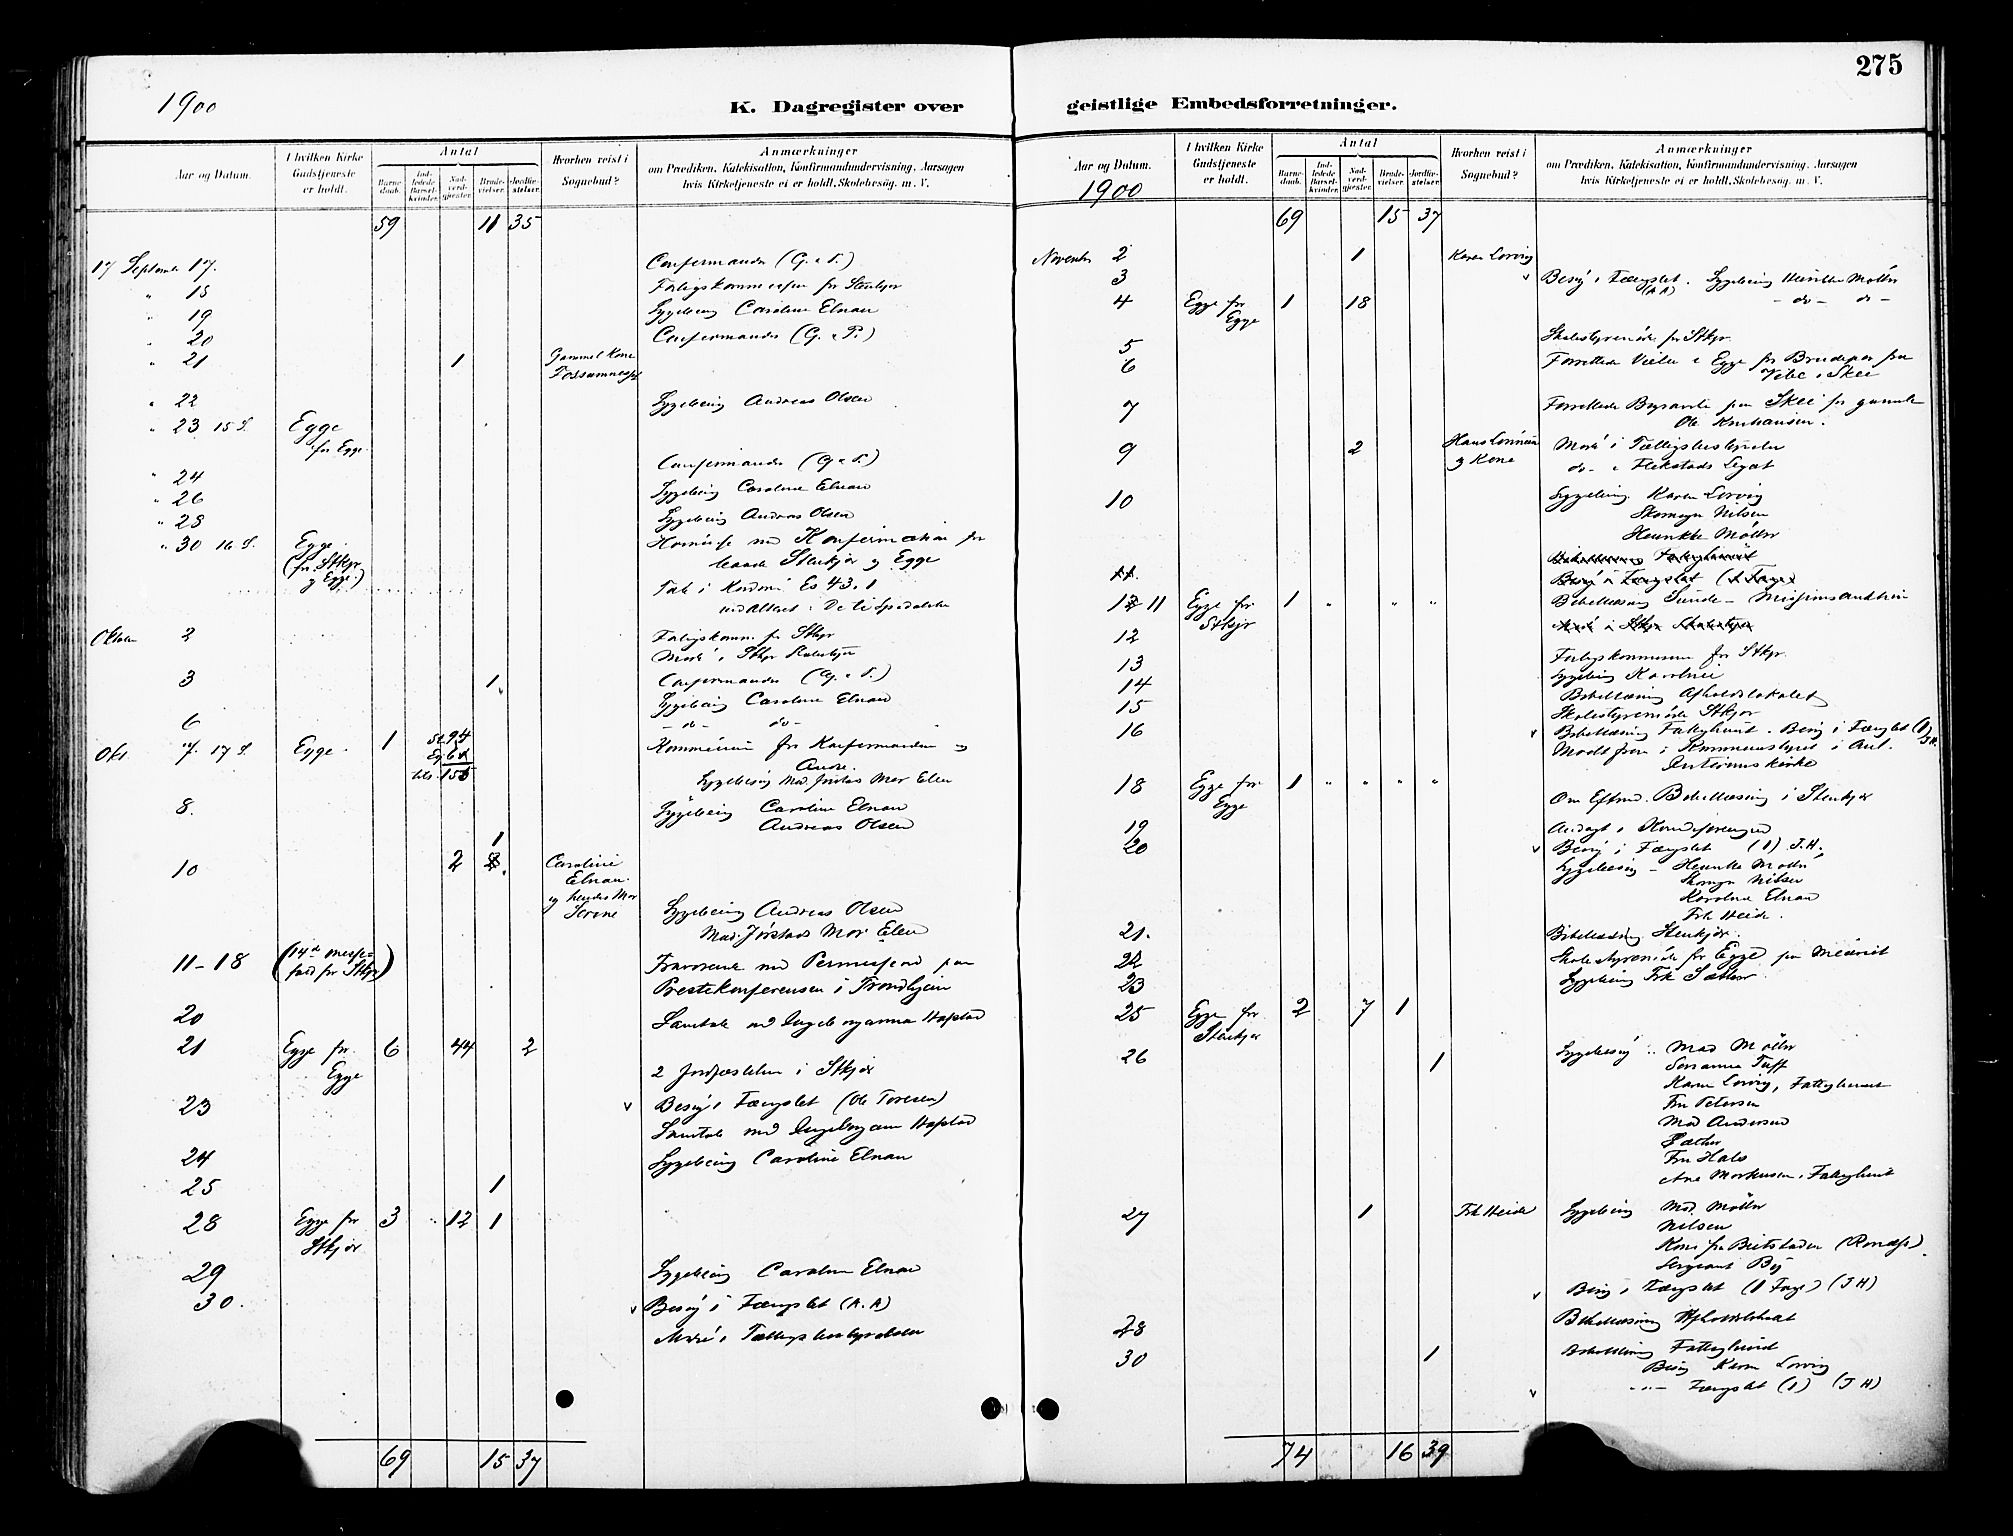 275
1900
K. Dagregister over
geistlige Embedsforretninger.
Aar og Datum.
I hvilken Kirke Gudstjeneste er holdt.
Antal
Barnedaab.
Indledede Barselkvinder.
Nadverdgjester.
Brudevielser.
Jordfæstelser.
Hvorhen reist i Sognebud?
Anmærkninger
om Prædiken, Katekisation, Konfirmandundervisning, Aarsagen
hvis Kirketjeneste ei er holdt, Skolebesøg. m. V.
59 11 35
17 Septemb 17. Confermander (G. i P.)
" 18 Forligskommission for Stenkjær
" 19 Sygebesøg Caroline Elnan
" 20 Confermander (G. i P.)
" 21 1 Gammel Kone
Fossumnesset
" 22 Sygebesøg Andreas Olsen
" 23 15 S. Egge
for Egge
" 24 Confermander (G. i P.)
" 26 Sygebesøg Caroline Elnan
" 28 Sygebesøg Andreas Olsen
" 30 16 S. Egge. Høimesse med Konfirmation for
(for Stkjr baade Stenkjær og Egge
og Egge) Tale i Kordøren Es 43, 1
ved Alteret: De ti Spedalske
Oktober 2 Forligskomm. for Stkjr
Møde i Stkjr Skolestyre
3 1 Confermander (G. i P.)
Sygebesøg Caroline Elnan
6 - do - do -
Okt. 7. 17 S. Egge. 1 St. 94 Kommunion for Konfermander og
Eg 61 Andre.
tils. 155 Sygebesøg Mad. Jørstads Mor Elen
8. Sygebesøg Caroline Elnan
Andreas Olsen
1
10 2 Caroline
Elnan
og hendes Mor
Serine Sygebesøg Andreas Olsen
Mad. Jørstads Mor Elen
11-18 (14de messe- Fraværende med Permission paa
fald for Stkjr) Prestekonferensen i Trondhjem
20 Samtale med Ingeborganna Hafstad
21 Egge for 6 44 2
Egge 2 Jordfæstelser i Stkjær
23 v Besøg i Fængslet (Ole Toresen)
Samtale med Ingeborganna Hafstad
24 Sygebesøg Caroline Elnan
25 1
28 Egge for 3 " 12 1
Stkjær
29 Sygebesøg Caroline Elnan
30. v Besøg i Fængslet (A. A)
Møde i Tilsynsbestyrelsen
69 15 37
Aar og Datum.
1900
I hvilken Kirke Gudstjeneste er holdt.
Antal
Barnedaab.
Indledede Barselkvinder.
Nadverdgjester.
Brudevielser.
Jordfæstelser.
Hvorhen reist i Sognebud?
Anmærkninger
om Prædiken, Katekisation, Konfirmandundervisning, Aarsagen
hvis Kirketjeneste ei er holdt, Skolebesøg. m. V.
69 15 37
November 2 1 Karen Lorvig
3 v Besøg i Fængslet. Sygebesøg Henrikke Møller
(A A)
4 Egge for 1 18 - do - do -
Egge
5 Skolestyremøde for Stkjr.
6 Forrettede Vielse i Egge for Brudepar fra
Vibe i Skei
7 Forrettede Begravelse paa Skei for gamle
Ole Knudsen.
9 2 Hans Lønnum Møde i Tilsynsbestyrelsen
og Kone do - i Flekstads Legat
10 Sygebesøg Karen Lorvig
Skomgr Nilsen
Henrikke Møller
11.
11 Egge for 1 " " " Bibellæsning Sunde - Missionsandthen
Stkjr
12
13 Forligskommission for Stkjr.
14 Sygebesøg Karoline
15 Bibellæsning Afholdslokalet
16 Skolestyremøde Stkjær
v Bibellæsning Fattighuset. Besøg i Fængslet (1) J.H.
Mødt frem i Kommunestyret i Anl.
Interimskirke
18 Egge for 1 " " " "
Egge Om Eftmd. Bibellæsning i Stenkjær
19 Andagt i Kvindeforening
20 v Besøg i Fængslet (1) J.H.
Sygebesøg - Henrikke Møller
Skomgr Nilsen
Karoline Elnan
Frk Heide.
21. Bibellæsning Stenkjær.
22 Skolestyremøde for Egge paa Meieriet
23 Sygebesøg Frk Sæther
25 Egge for 2 7 1
Stenkjær
26 1 Sygebesøg: Mad Møller
Serianna Tuff
Karen Lorvig, Fattighuset
Fru Petersen
Mad Andersen
Sæther
Fru Hals
Ane Markusen. Fattighuset
27 1 Frk Heide Sygebesøg Mad. Møller
Nilsen
Kone fra Beitstaden
Sergeant Bøj
v Besøg i Fængslet (1 Fange) (J H)
28 Bibellæsning Afholdslokalet
30 1 Bibellæsning Fattighuset
Besøg Karen Lorvig
v - " - Fængslet (1) (J H)
74 16 39